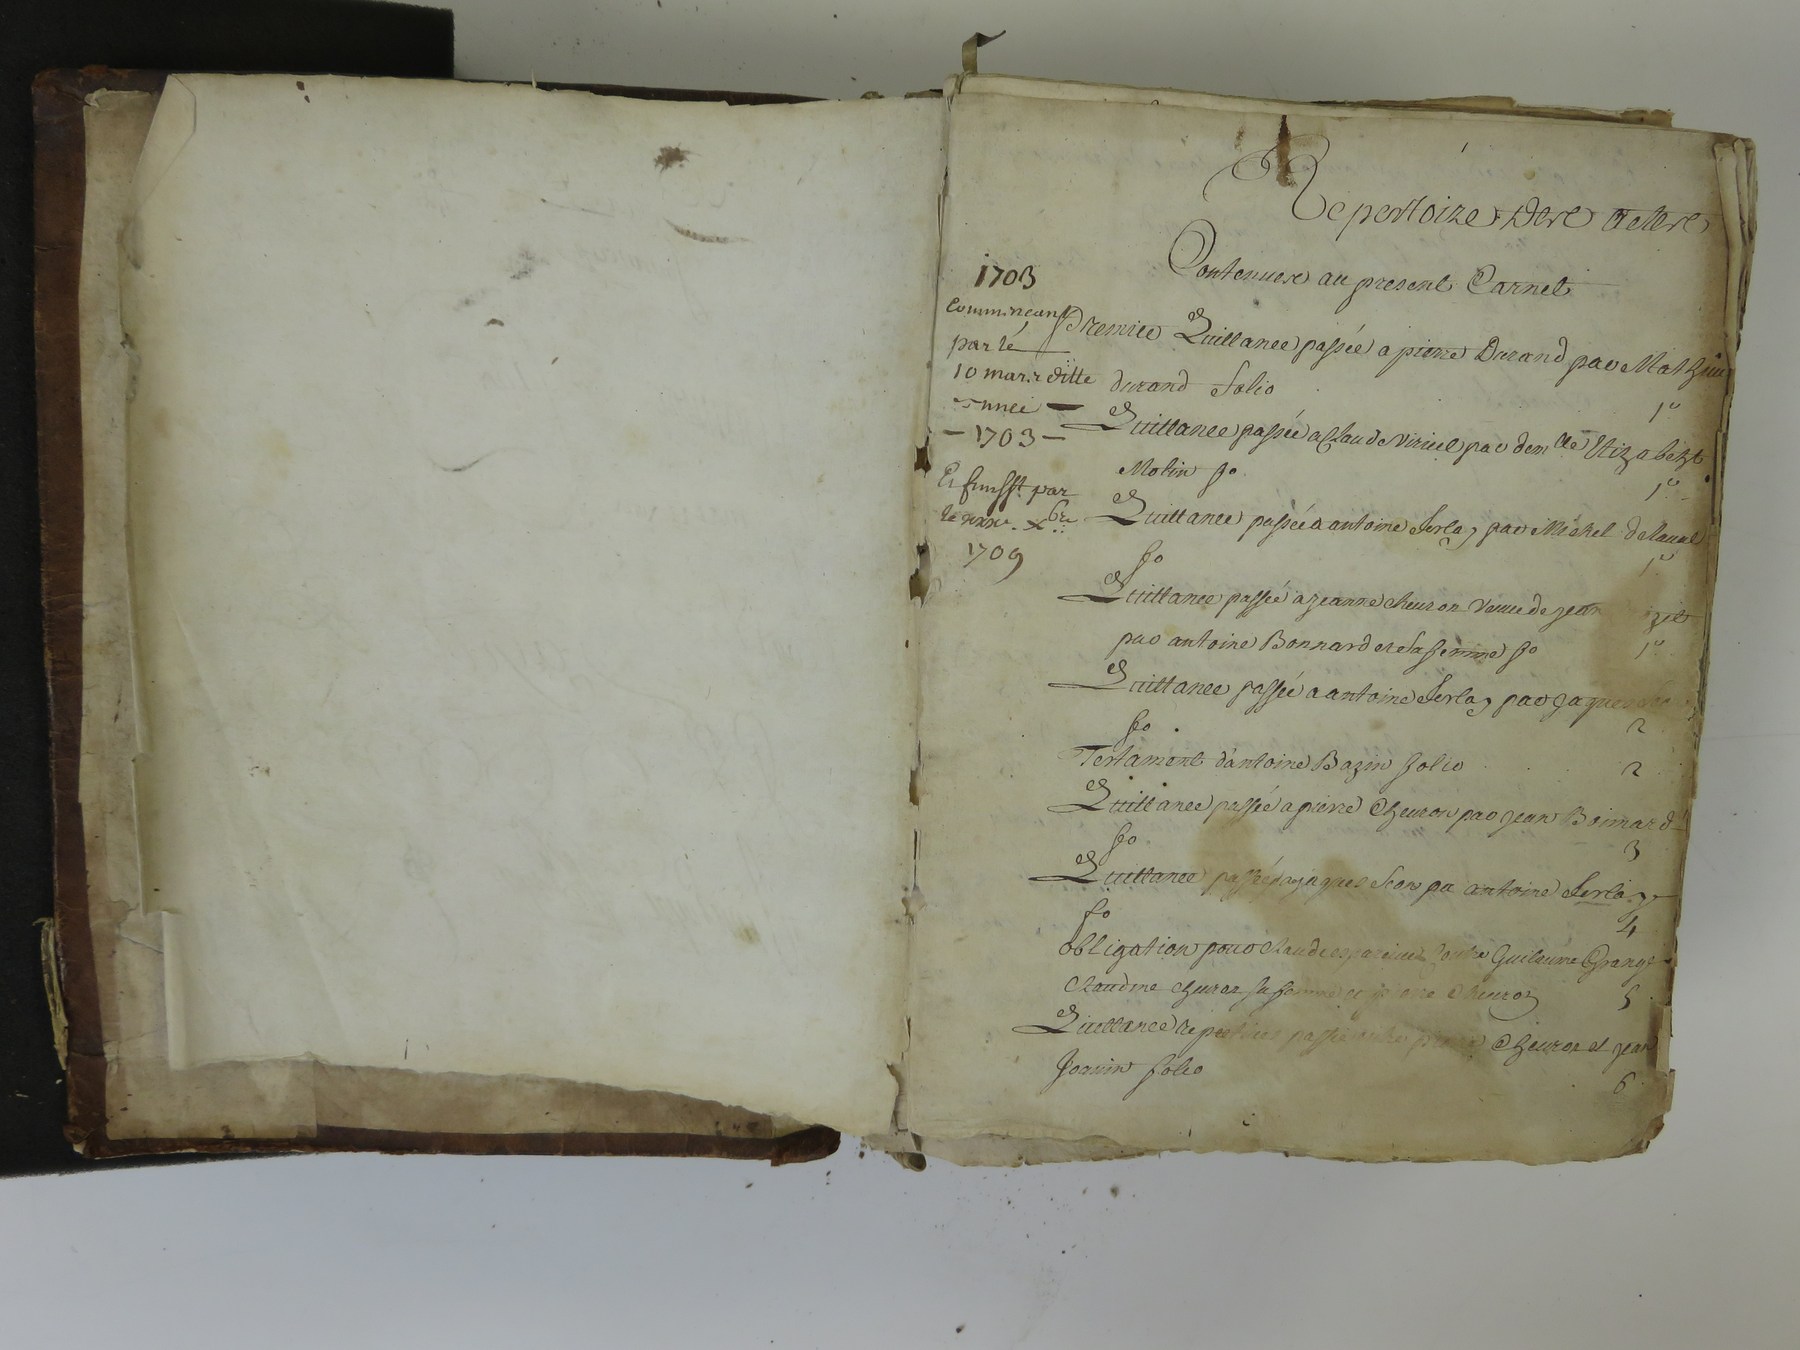 Repertoire des actes
Contenues au present Carnet
1703
Commencant
par le
10 mars ditte
année
- 1703 -
Et finisst par
le xbre
1709
Premiee Quittance passée a pierre Durand par Mathieu
durand folio 1o
Quittance passée a Claude Viriel par demlle Elizabeht
Molin fo 1o
Quittance passée a antoine Ferlay par Michel delaual
fo 1o
Quittance passée a jeanne cheuron veuue de jean
par antoine Bonnard et sa femme fo 1o
Quittance passée a antoine Ferlay par jaques
fo 2
Testament d'antoine Bazin folio 2
Quittance passée a pierre Cheuron par jean Boinard
fo 3
Quittance passée a jaques par antoine Ferlay
fo 4
obligation pour Claude contre Guilaume Grange
Claudine cheuron sa femme et pierre cheuron 5
Quittance passée entre pierre Cheuron et jean
joanin folio 6